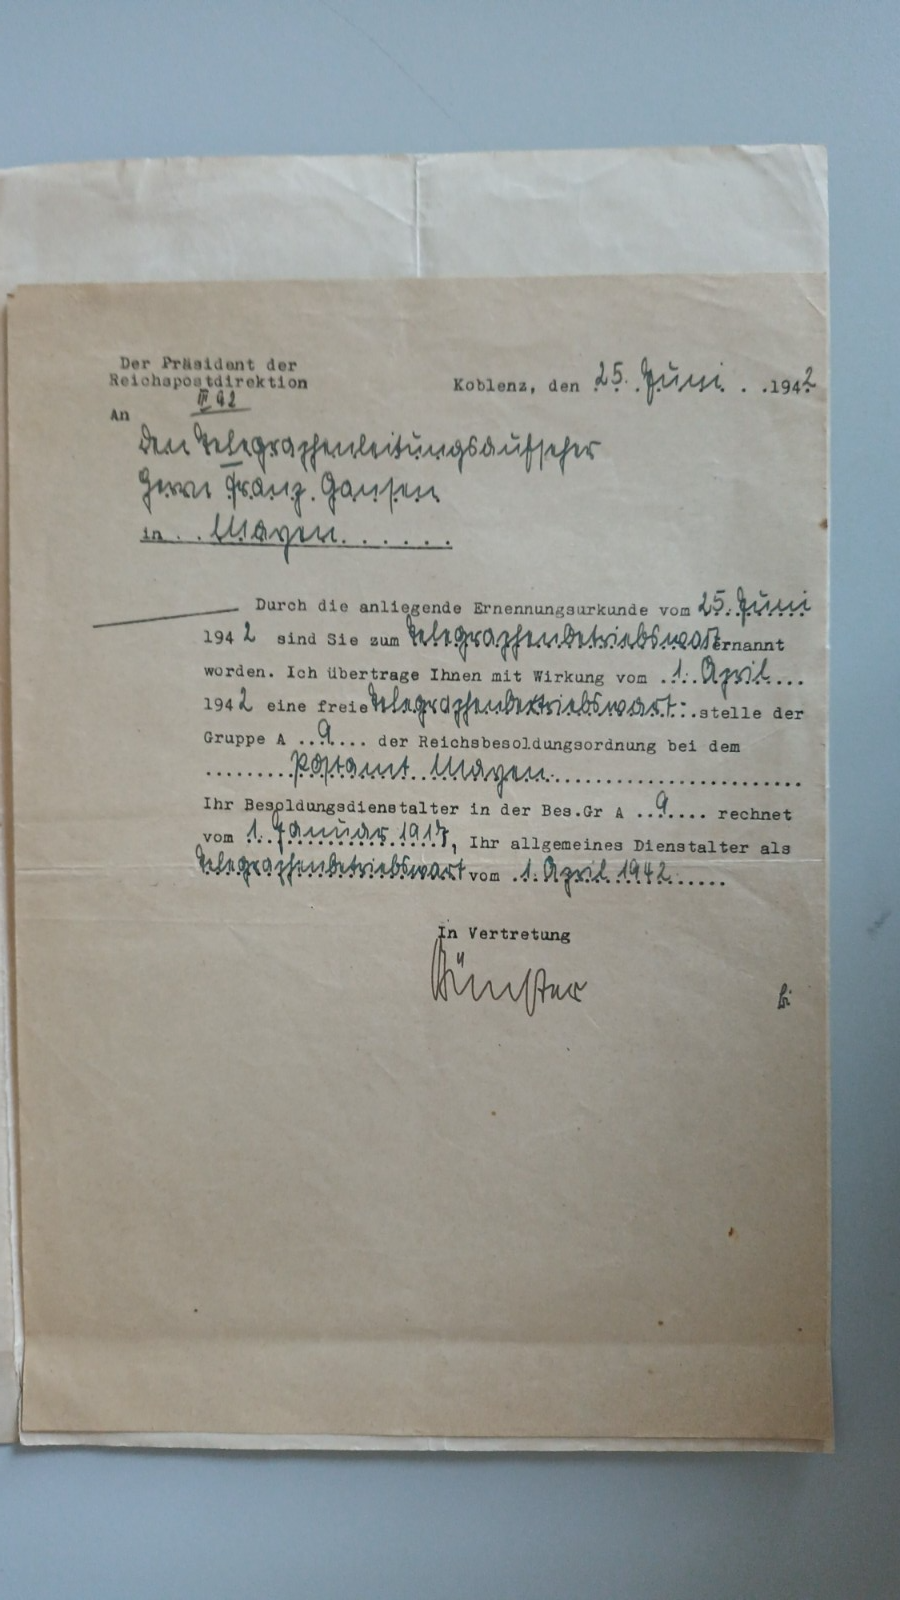 Der Präsident der
Reichspostdirektion
Koblenz, den 25. Juni . . 1942
An
den Telegraphenleitungsaufseher
Herrn Franz. Gansen
in . . Mayen . . . . . .
Durch die anliegende Ernennungsurkunde vom 25. Juni
1942 sind Sie zum Telegraphenbetriebswart ernannt
worden. Ich übertrage Ihnen mit Wirkung vom .1. April...
1942 eine freie Telegraphenbetriebswart:.stelle der
Gruppe A ..9... der Reichsbesoldungsordnung bei dem
.........Postamt Mayen.........................
Ihr Besoldungsdienstalter in der Bes.Gr A ..9.... rechnet
vom 1. Januar 1917, Ihr allgemeines Dienstalter als
Telegraphenbetriebswart vom .1. April 1942......
In Vertretung